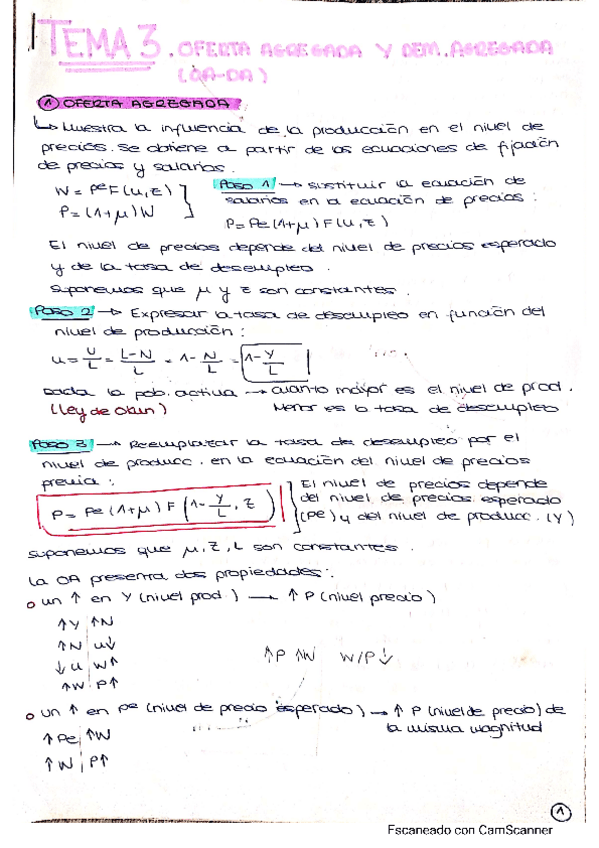 TEMA 3. OFERTA AGREGADA Y DEM. AGREGADA
(OA-DA)
① OFERTA AGREGADA
↳ Muestra la influencia de la producción en el nivel de
precios. Se obtiene a partir de las ecuaciones de fijación
de precios y salarios.
W = Pe F(u,z)
P = (1+μ)W
PASO 1 → sustituir la ecuación de
salarios en la ecuación de precios:
P = Pe(1+μ)F(u,z)
El nivel de precios depende del nivel de precios esperado
y de la tasa de desempleo.
Suponemos que μ y z son constantes.
PASO 2 → Expresar la tasa de desempleo en función del
nivel de producción:
u = U/L = L-N/L = 1 - N/L = 1 - Y/L
Dada la pob. activa → cuanto mayor es el nivel de prod.
(Ley de Okun) Menor es la tasa de desempleo
PASO 3 → Reemplazar la tasa de desempleo por el
nivel de producc. en la ecuación del nivel de precios
previa:
P = Pe(1+μ) F (1 - Y/L, z)
El nivel de precios depende
del nivel de precios esperado
(Pe) y del nivel de producc. (Y)
suponemos que μ, z, L son constantes.
La OA presenta dos propiedades:
o un ↑ en Y (nivel prod.) → ↑ P (nivel precio)
↑Y ↑N
↑N u↓
↓u W↑
↑W P↑
↑P ↑W W/P ↓
o un ↑ en Pe (nivel de precio esperado) → ↑ P (nivel de precio) de
la misma magnitud
↑Pe ↑W
↑W P↑
①
Escaneado con CamScanner